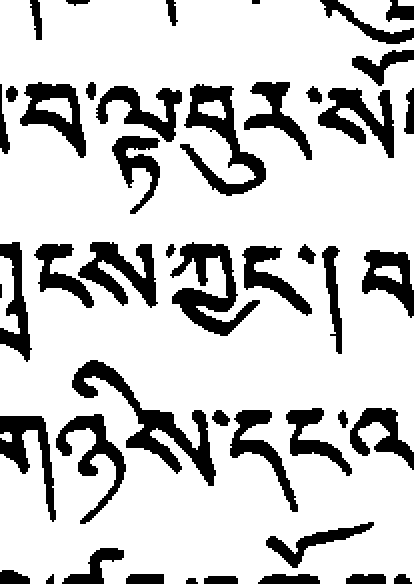 བ་ལྟ་བུར་སོ
ངས་ཀྱང་། བ
གཉིས་དང་འ